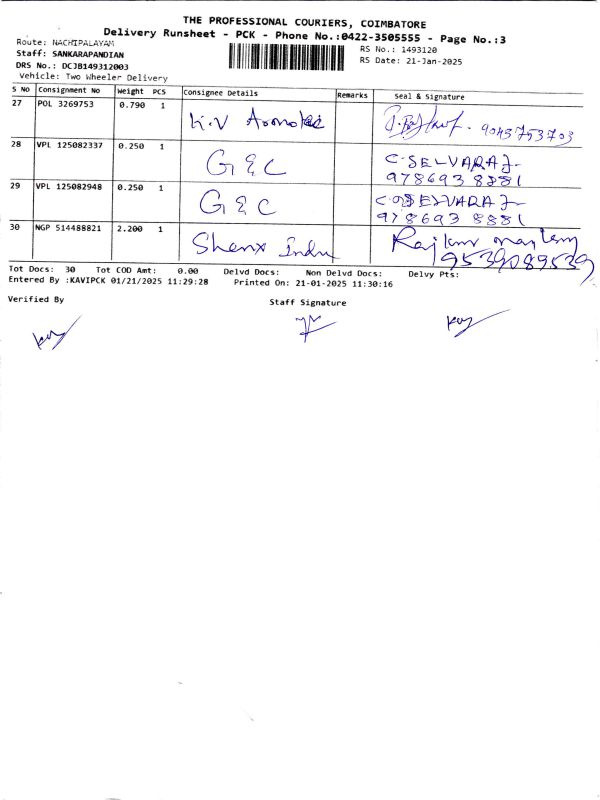 THE PROFESSIONAL COURIERS, COIMBATORE
Delivery Runsheet - PCK - Phone No.:0422-3505555 - Page No.:3
Route: NACHIPALAYAM
RS No.: 1493120
Staff: SANKARAPANDIAN
RS Date: 21-Jan-2025
DRS No.: DCJB149312003
Vehicle: Two Wheeler Delivery
S No Consignment No Weight PCS Consignee Details Remarks Seal & Signature
27 POL 3269753 0.790 1 K.V 9043753703
28 VPL 125082337 0.250 1 G & C C. SELVARAJ
9786938881
29 VPL 125082948 0.250 1 G & C SELVARAJ
9786938881
30 NGP 514488821 2.200 1 Rajkumar
9539089539
Tot Docs: 30 Tot COD Amt: 0.00 Delvd Docs: Non Delvd Docs: Delvy Pts:
Entered By :KAVIPCK 01/21/2025 11:29:28 Printed On: 21-01-2025 11:30:16
Verified By Staff Signature